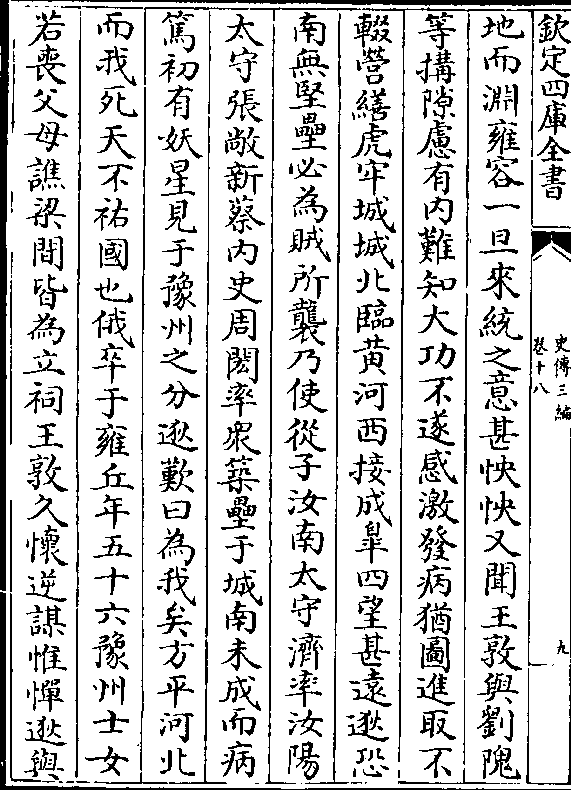 欽定四庫全書
史傳三編
卷十八
九
地而淵雍容一旦來統之意甚怏怏又聞王敦與劉隗
等搆隙慮有内難知大功不遂感激發病猶圖進取不
輟營繕虎牢城城北臨黄河西接成臯四望甚遠逖恐
南無堅壘必為賊所襲乃使從子汝南太守濟率汝陽
太守張敞新蔡内史周閎率衆築壘于城南未成而病
篤初有妖星見于豫州之分逖歎曰為我矣方平河北
而我死天不祐國也俄卒于雍丘年五十六豫州士女
若喪父母譙梁間皆為立祠王敦久懷逆謀惟憚逖與